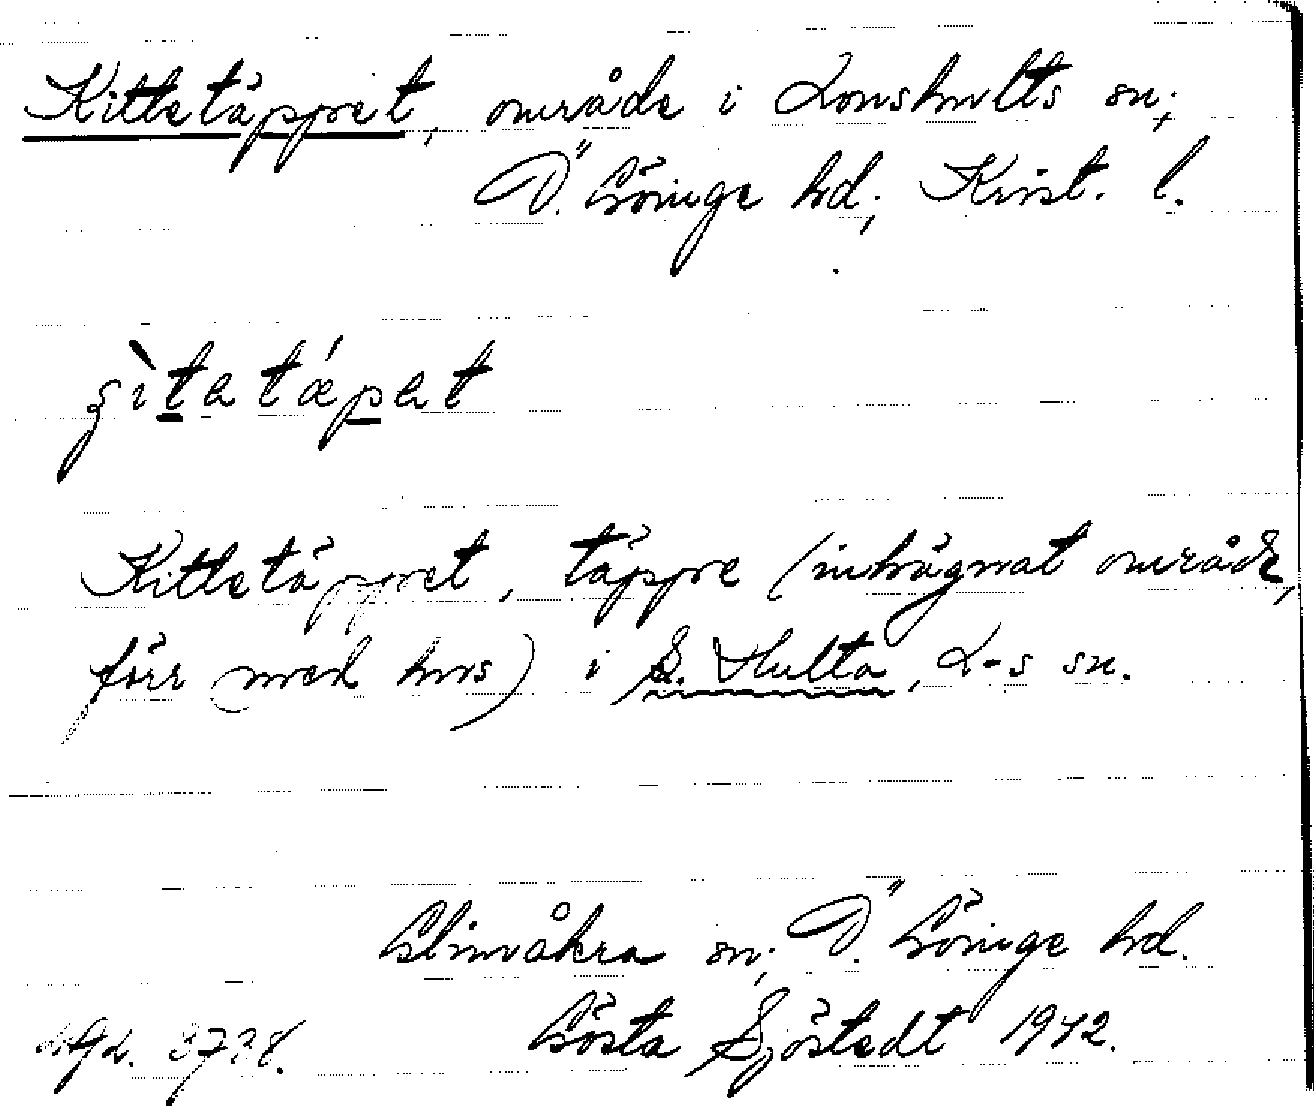 Kittetäppet, område i Lonshults sn;
Ö. Göinge hd; Krist. l.
Kittetäppet, täppe (inhägnat område,
förr med hus) i S. Hulta, L-s sn.
Glimåkra sn; Ö. Göinge hd.
Gösta Sjöstedt 1942.